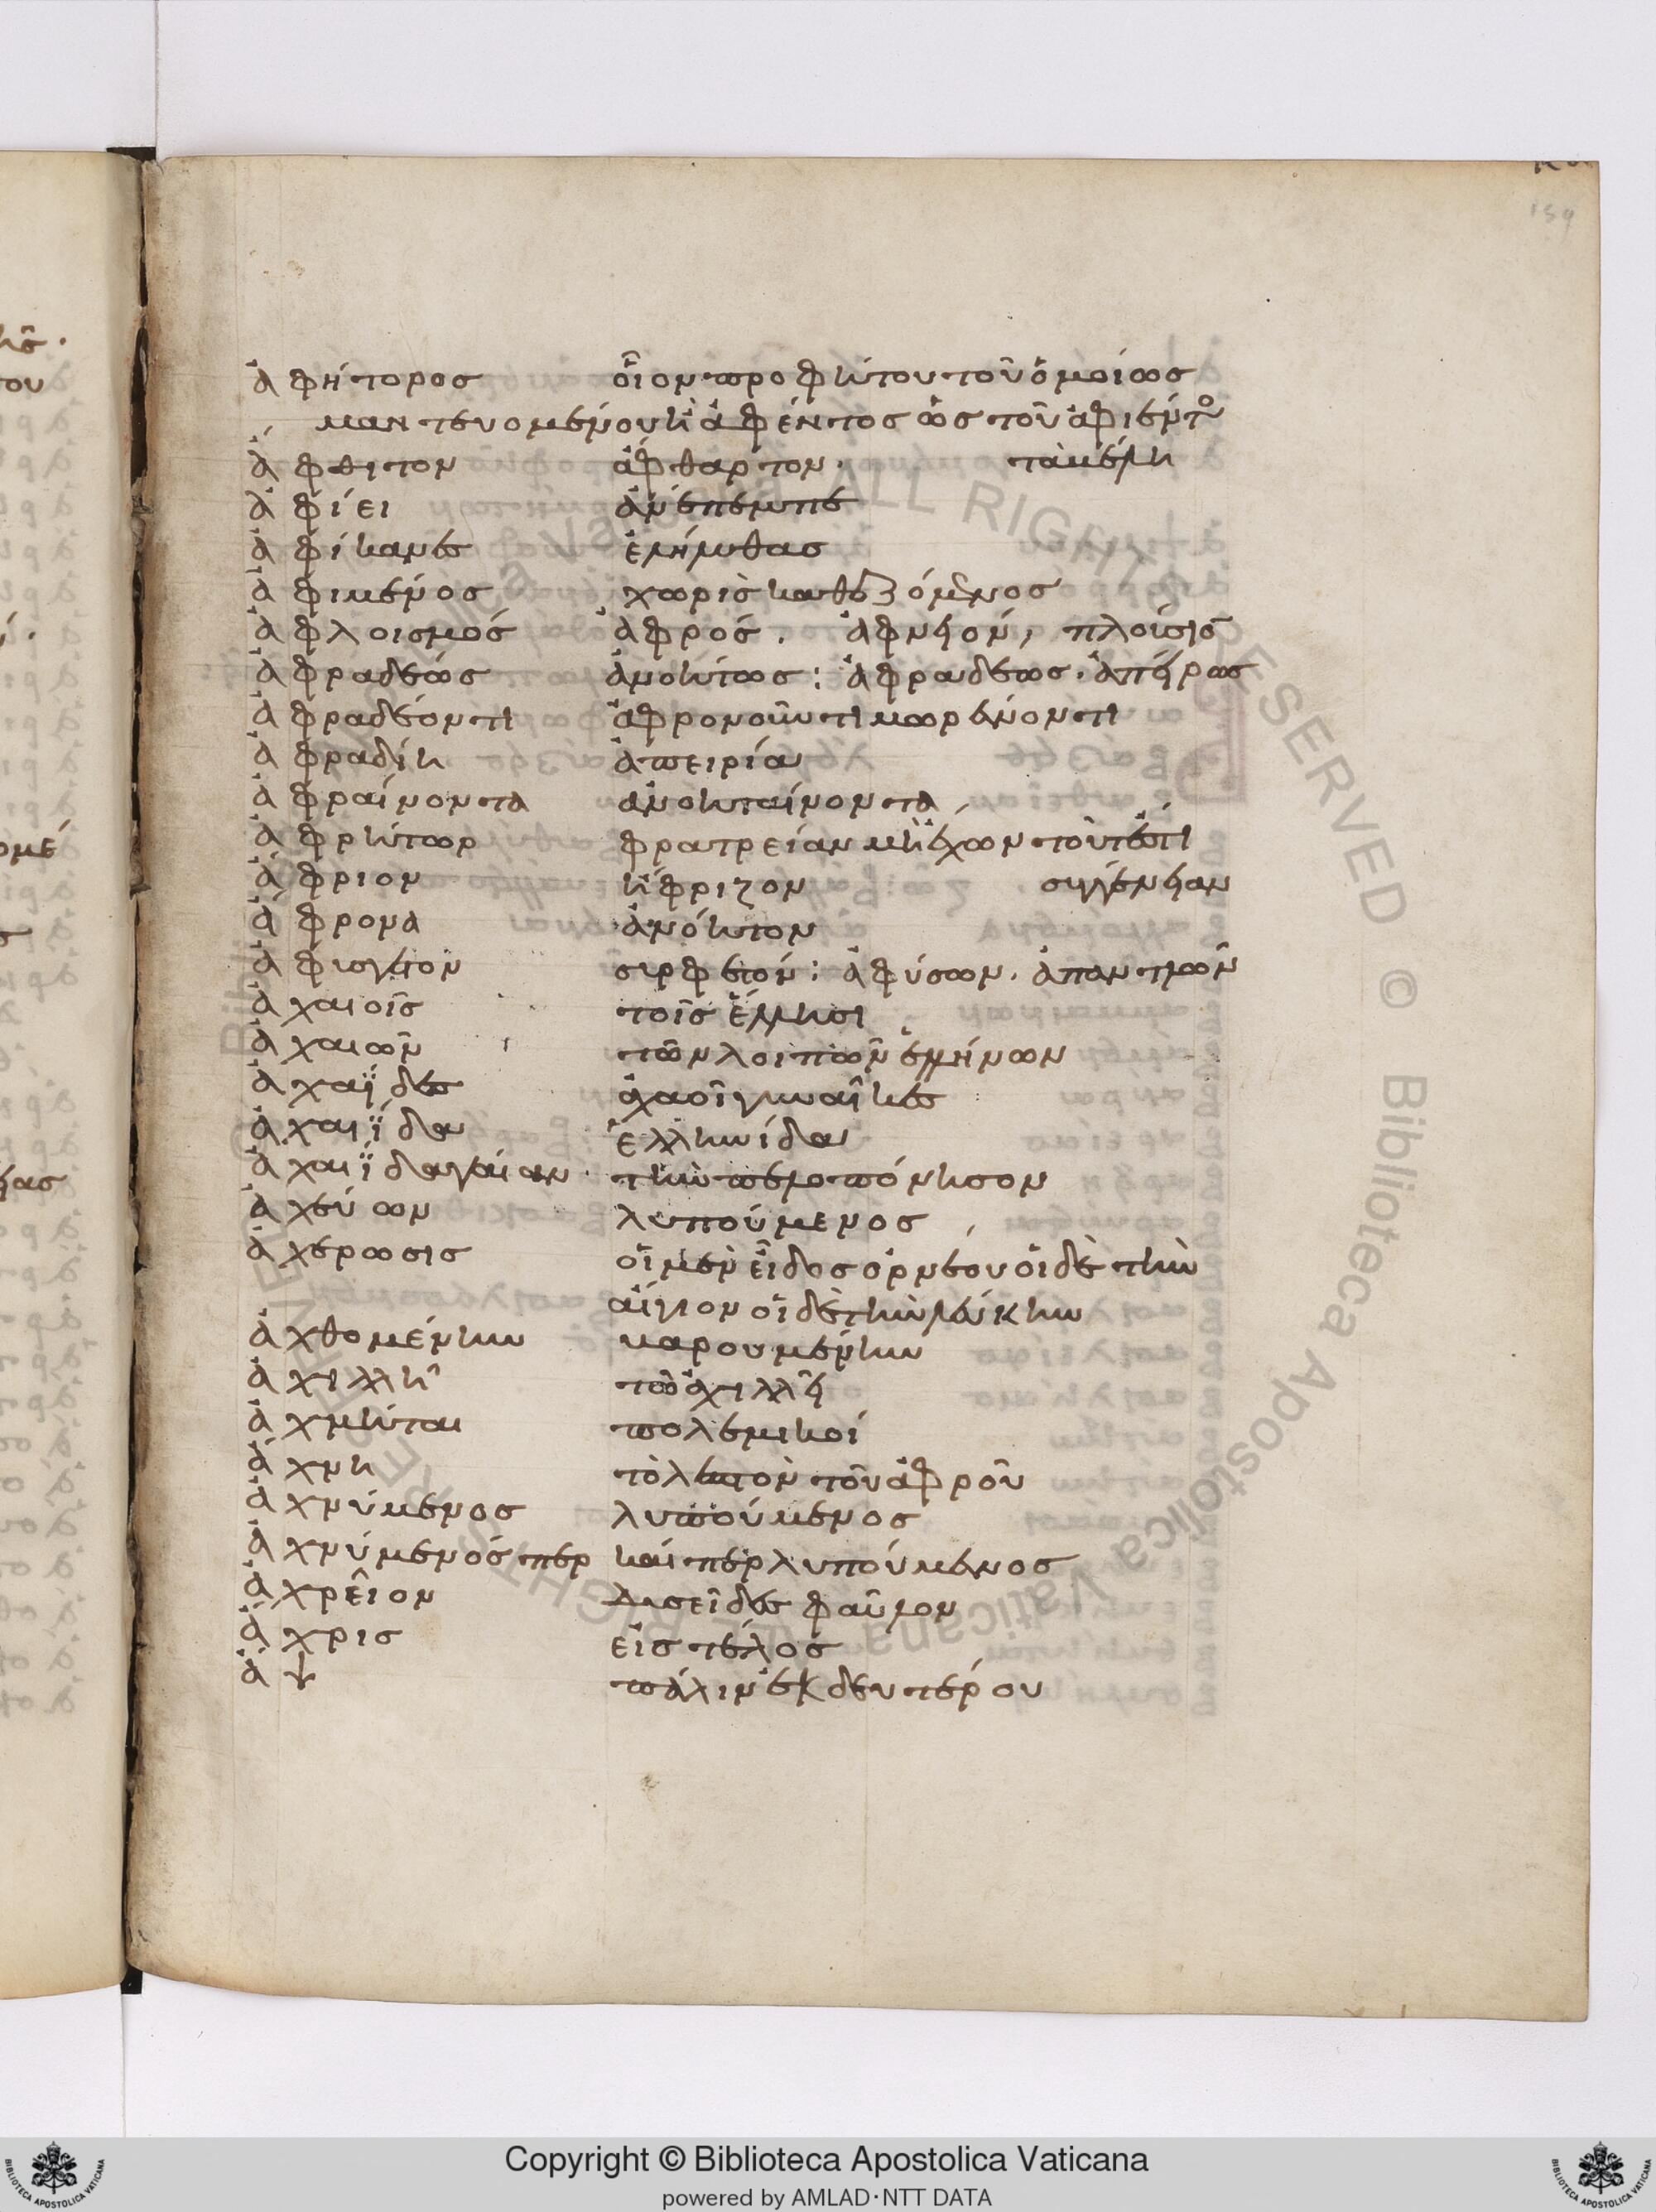 159
ἀφήτορος οἷον προφήτου τοῦ ὁμοίως
μαντευομένου ἢ ἀφέντος ὡς τοῦ ἀφιέντο
ἄφθιτον ἄφθαρτον. τὰ μέλη
ἀφίει ἀνέπεμπε
ἀφίκανες ἐλήλυθας
ἀφιμενος χωρὶς καθεζόμενος
ἀφλοισμός ἀφρός. ἀφνειόν, πλούσιον
ἀφραδέως ἀνοήτως: ἀφραδέως. ἀπείρως
ἀφραδέοντι ἀφρονοῦντι μωραίνοντι
ἀφραδίη ἀπειρία
ἀφραίνοντα ἀνοηταίνοντα
ἀφρήτωρ φρατρείαν μὴ ἔχων τουτέστι
ἄφριον ἤφριζον συγγένειαν
ἄφρονα ἀνόητον
ἀφυσγετον συρφετόν: ἀφύσων. ἀπαντλῶν
ἀχαιοῖς τοῖς ἕλλησι
ἀχαιῶν τῶν λοιπῶν ἑλλήνων
ἀχαιΐδες ἀχαοὶ γυναῖκες
ἀχαιΐδα ἑλληνίδα
ἀχαιΐδα γαίαν τὴν πελοπόννησον
ἀχεύων λυπούμενος
ἀχερωσις οἱ μὲν εἶδος ὀρνέου οἱ δὲ τὴν
αἴγιον οἱ δὲ τὴν λεύκην
ἀχθομένην βαρουμένην
ἀχιλλῆϊ τῷ ἀχιλλεῖ
αἰχμηταὶ πολεμικοί
ἄχνη τὸ λεπτὸν τοῦ ἀφροῦ
ἀχνύμενος λυπούμενος
ἀχνύμενός περ καίπερ λυπούμενος
ἀχρεῖον δυσειδὲς φαῦλον
ἄχρις εἰς τέλος
ἂψ πάλιν ἐκ δευτέρου
ALL RIGHTS RESERVED © Biblioteca Apostolica Vaticana
Copyright © Biblioteca Apostolica Vaticana
powered by AMLAD·NTT DATA
BIBLIOTECA APOSTOLICA VATICANA
BIBLIOTECA APOSTOLICA VATICANA